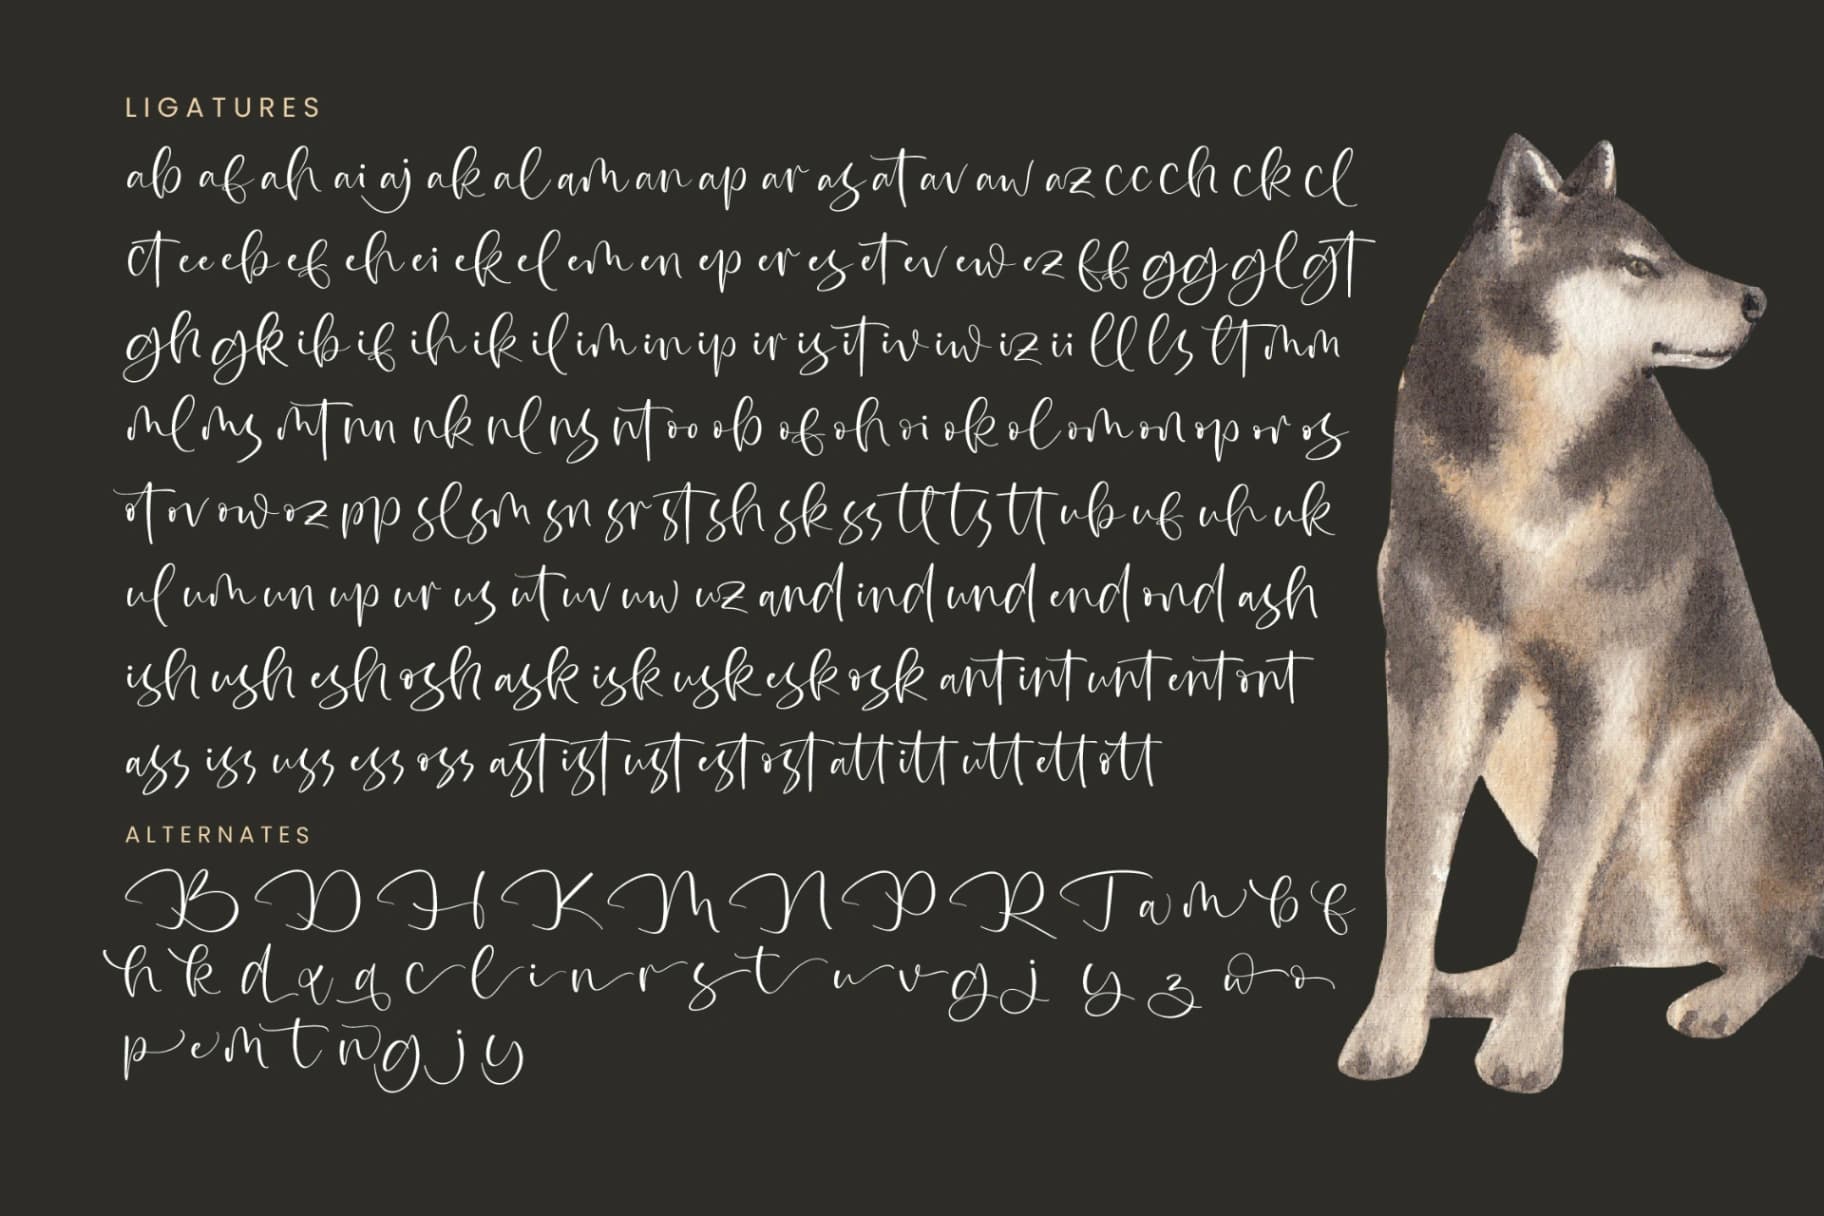 LIGATURES
ab af ah ai aj ak al am an ap ar as at av aw az cc ch ck cl
ct ee eb ef eh ei ek el em en ep er es et ev ew ez ff gg gl gt
gh gk ib if ih ik il im in ip ir is it iv iw iz ii ll ls lt mm
ml ms mt nn nk nl ns nt oo ob of oh oi ok ol om on op or os
ot ov ow oz pp sl sm sn sr st sh sk ss tl ts tt ub uf uh uk
ul um un up ur us ut uv uw uz and ind und end ond ash
ish ush esh osh ask isk usk esk osk ant int unt ent ont
ass iss uss ess oss ast ist ust est ost att itt utt ett ott
ALTERNATES
B D H K M N P R T a m b f
h k d x q c l i n r s t u v g j y z w o
p e m t n g j y